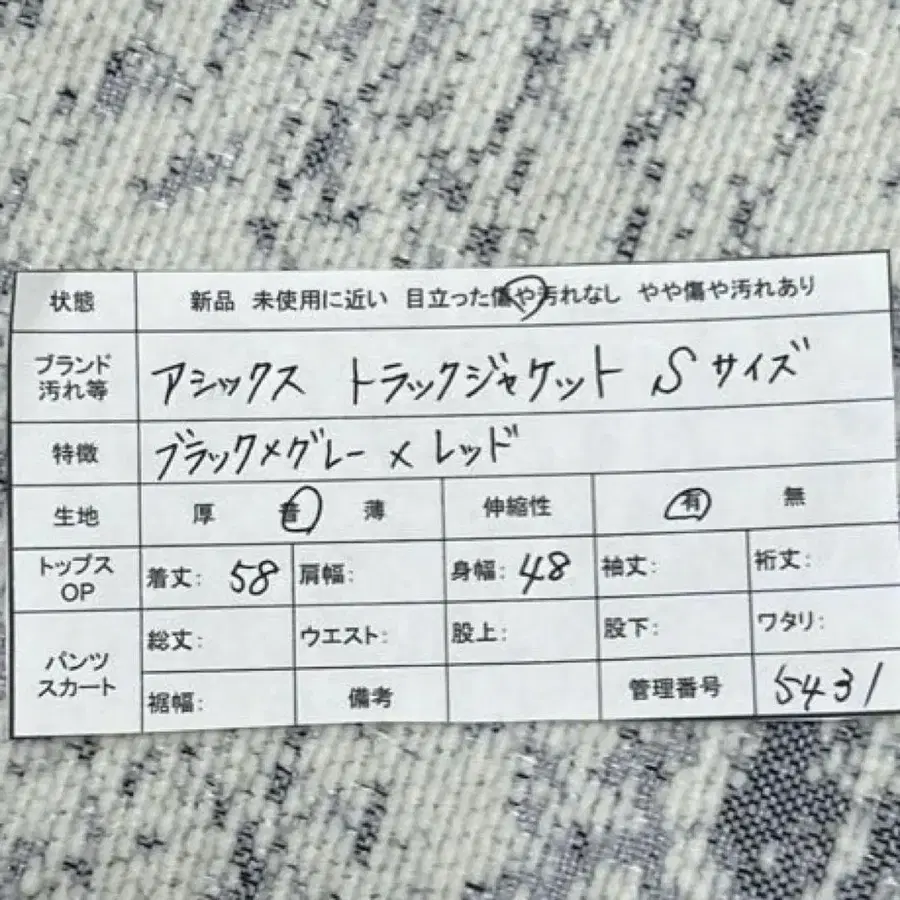 状態 新品 未使用に近い 目立った傷や汚れなし やや傷や汚れあり
ブランド 汚れ等 アシックス トラックジャケット Sサイズ
特徴 ブラック×グレー×レッド
生地 厚 普 薄 伸縮性 有 無
トップス OP 着丈: 58 肩幅: 身幅: 48 袖丈: 裄丈:
パンツ スカート 総丈: ウエスト: 股上: 股下: ワタリ:
裾幅: 備考 管理番号 5431